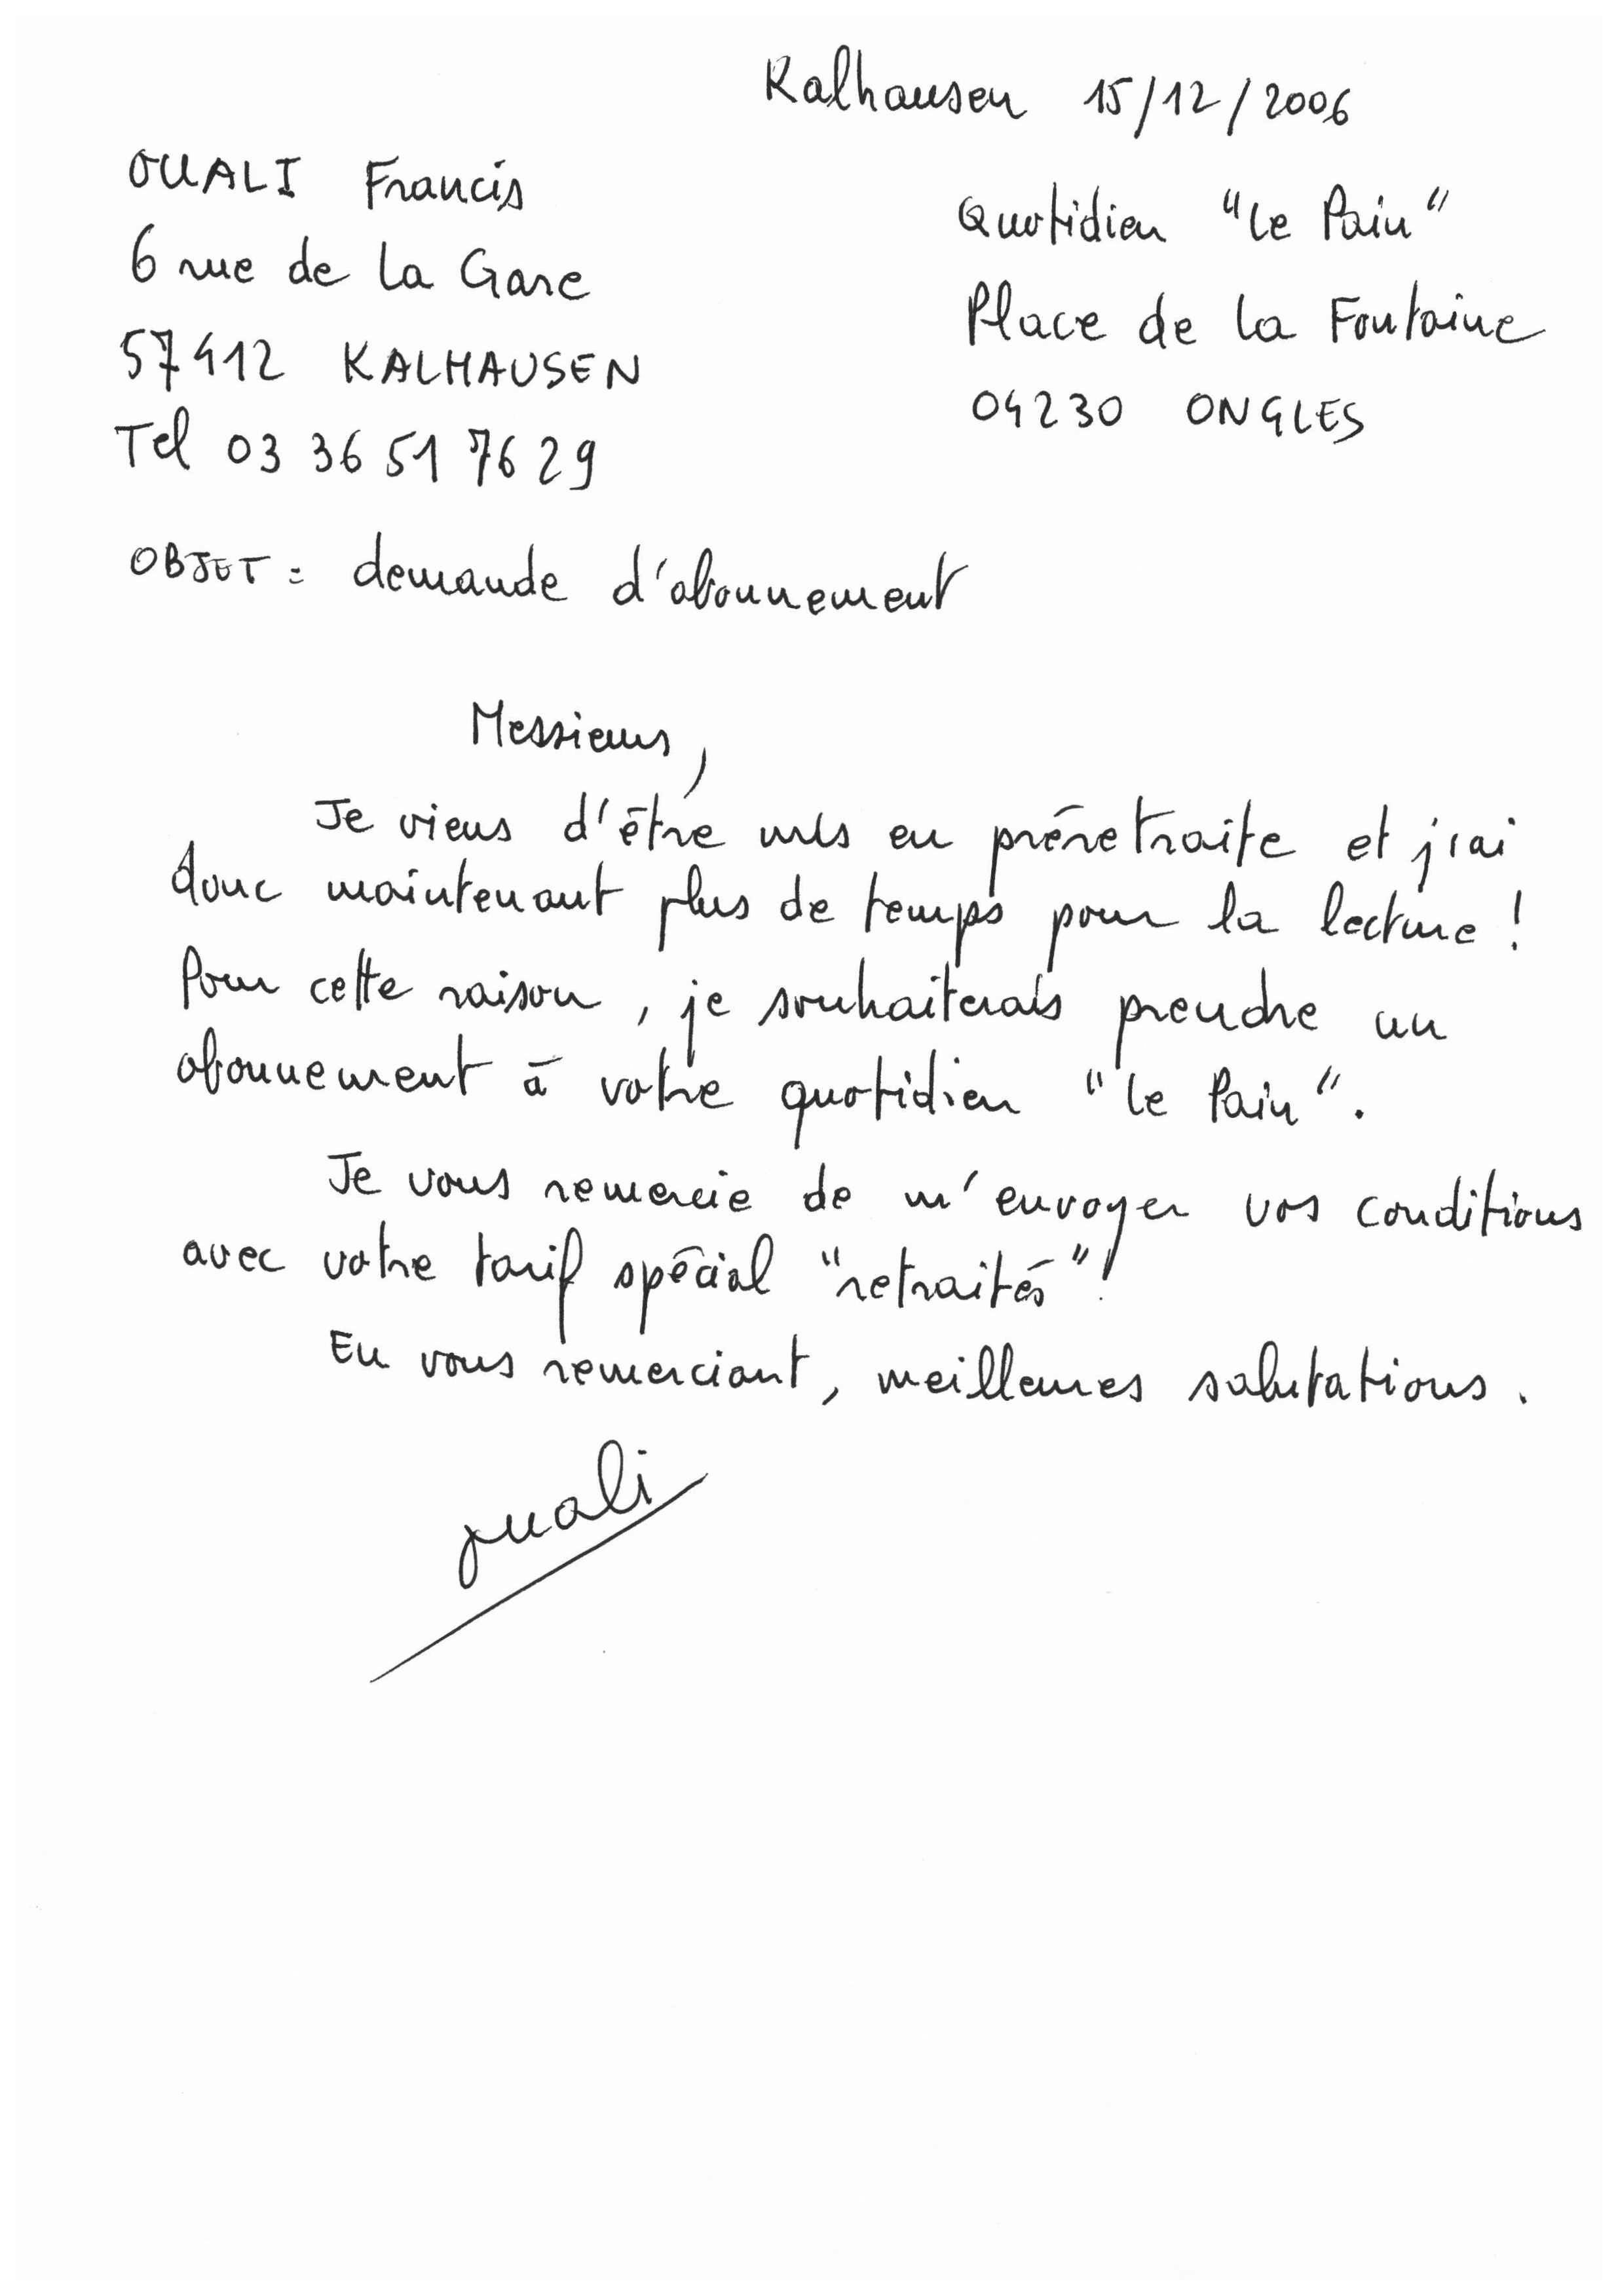 Kalhausen 15/12/2006
OUALI Francis
6 rue de la Gare
57412 KALHAUSEN
Tel 03 36 51 76 29
Quotidien "Le Pain"
Place de la Fontaine
04230 ONGLES
OBJET : demande d'abonnement
Messieurs,
Je viens d'être mis en préretraite et j'ai
donc maintenant plus de temps pour la lecture !
Pour cette raison, je souhaiterais prendre un
abonnement à votre quotidien "Le Pain".
Je vous remercie de m'envoyer vos conditions
avec votre tarif spécial "retraités" !
En vous remerciant, meilleures salutations.
ouali